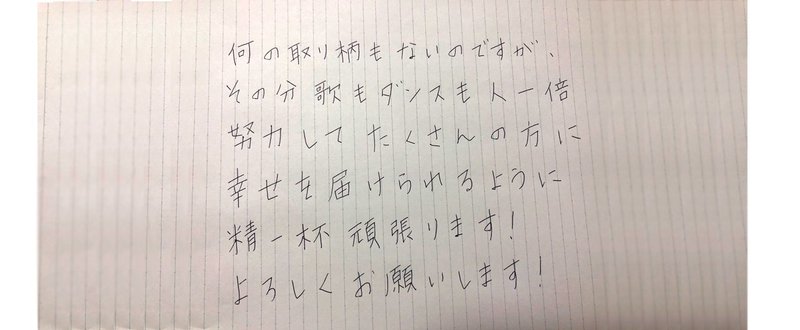 何の取り柄もないのですが、
その分歌もダンスも人一倍
努力してたくさんの方に
幸せを届けられるように
精一杯頑張ります!
よろしくお願いします!